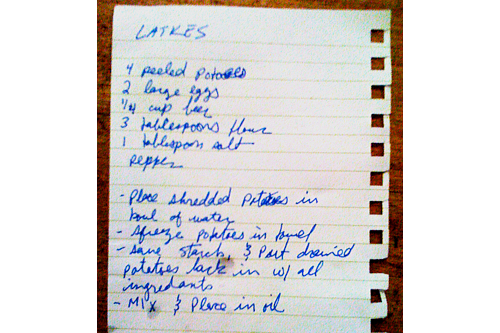 LATKES
4 peeled potatoes
2 large eggs
1/4 cup beer
3 tablespoons flour
1 tablespoon salt
pepper
- Place shredded potatoes in
bowl of water
- squeeze potatoes in towel
- save starch, & Put drained
potatoes back in w/ all
ingredients
- MIX & Place in oil